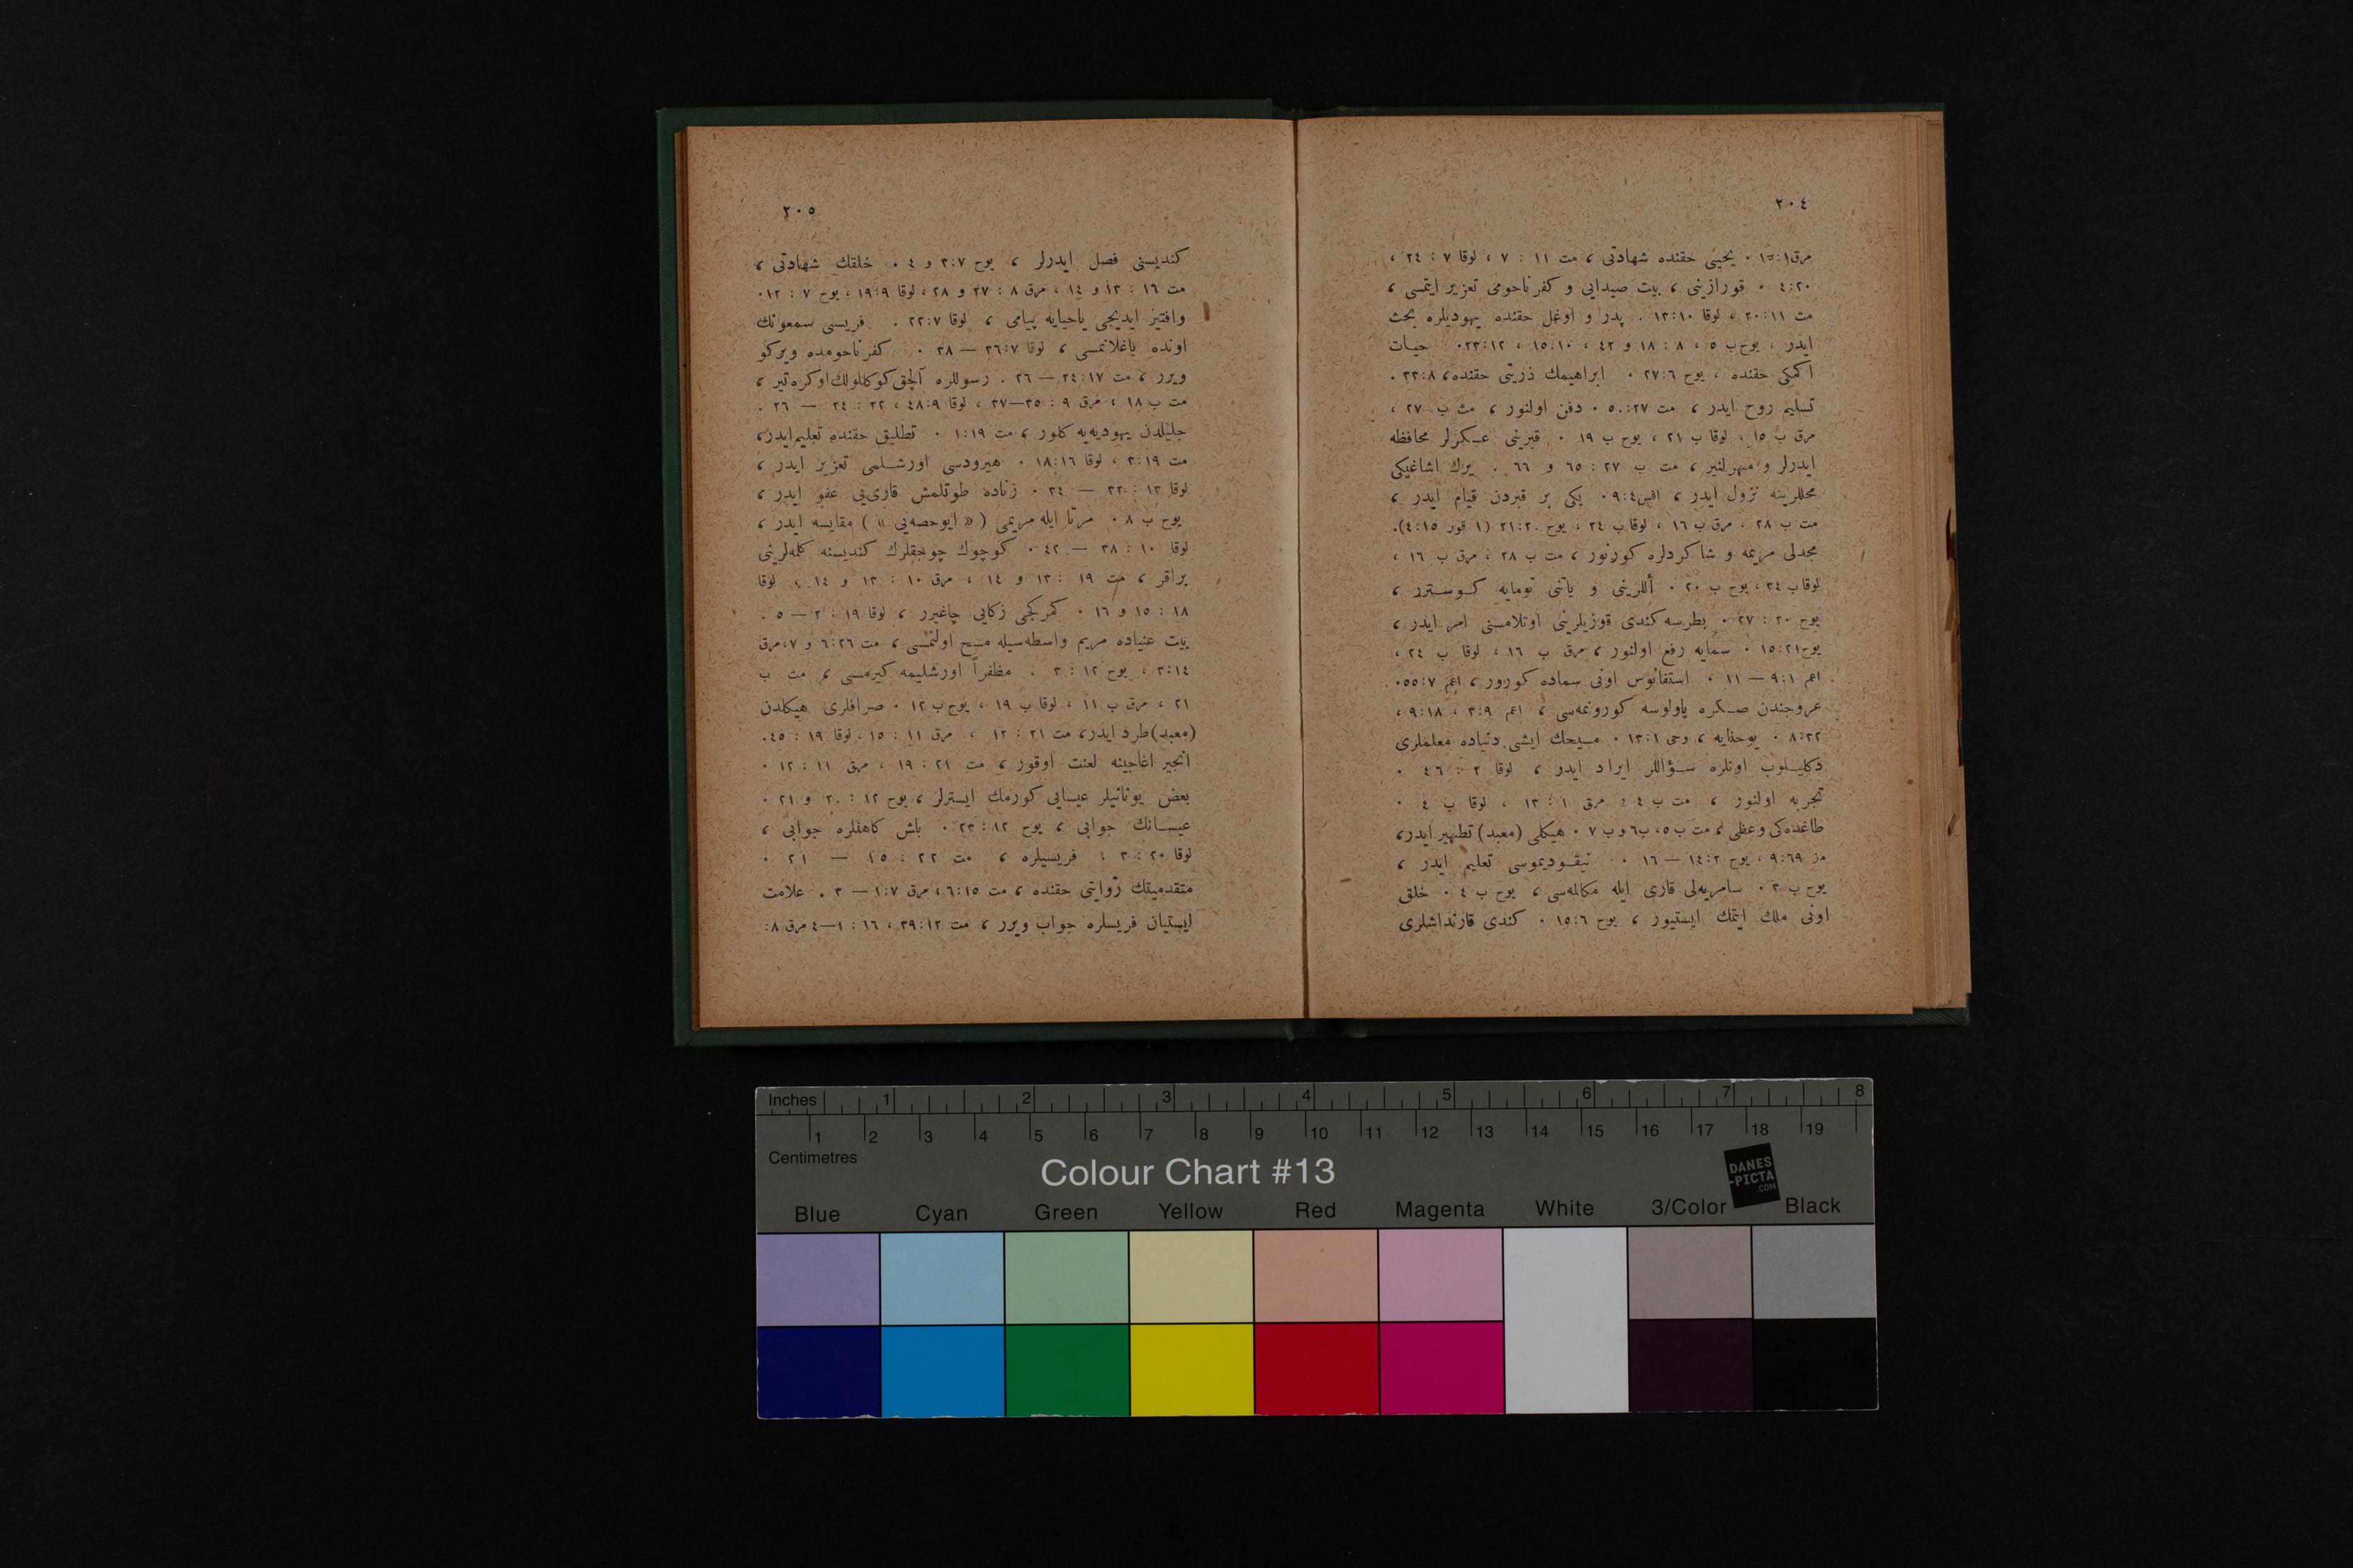 ٢٠٤
مرق ١٥:١ ٠ يحيى حقنده شهادتى ، مت ١١ : ٧ ، لوقا ٧ : ٢٤ ،
٤:٢٠ ٠ قورازينى ، بيت صيدايى و كفرناحومى تعزير ايتمسى ،
مت ٢٠:١١ ، لوقا ١٣:١٠ . پدر و اوغل حقنده يهوديلره بحث
ايدر ، يوح ب ٥ ، ٨ : ١٨ و ٤٢ ، ١٥:١٠ ، ٢٣:١٢ ٠ حيات
اكمكى حقنده ، يوح ٢٧:٦ ٠ ابراهيمك ذريتى حقنده ، ٣٣:٨ .
تسليم روح ايدر ، مت ٥٠:٢٧ ٠ دفن اولنور ، مت ب ٢٧ ،
مرق ب ١٥ ، لوقا ب ٢١ ، يوح ب ١٩ ٠ قبرينى عسكرلر محافظه
ايدرلر و مهرلنير ، مت ب ٢٧ : ٦٥ و ٦٦ . يرك اشاغيكى
محللرينه نزول ايدر ، افس ٩:٤ ٠ يكى بر قبردن قيام ايدر ،
مت ب ٢٨ ، مرق ب ١٦ ، لوقا ب ٢٤ ، يوح ٢١:٢٠ (١ قور ٤:١٥).
مجدلى مريمه و شاكردلره كورنور ، مت ب ٢٨ ، مرق ب ١٦ ،
لوقا ب ٢٤ ، يوح ب ٢٠ ٠ أللرينى و يانى تومايه كوسترر ،
يوح ٢٠ : ٢٧ ٠ بطرسه كندى قوزيلرينى اوتلامسنى امر ايدر ،
يوح ١٥:٢١ ٠ سمايه رفع اولنور ، مرق ب ١٦ ، لوقا ب ٢٤ ،
اعم ٩:١ — ١١ ٠ استفانوس اونى سماده كورور ، اعم ٥٥:٧ ٠
عروجندن صكره پاولوسه كورونمه‌سى ، اعم ٣:٩ ، ٩:١٨ ،
٨:٢٢ ٠ يوحنايه ، وحى ١٣:١ ٠ مسيحك ايشى دنياده معلملرى
دكليلوب اونلره سؤاللر ايراد ايدر ، لوقا ٢ : ٤٦ ٠
تجربه اولنور ، مت ب ٤ ، مرق ١ : ١٣ ، لوقا ب ٤ ٠
طاغده‌كى وعظى ، مت ب ٥ ، ب ٦ و ب ٧ ٠ هيكلى (معبد) تطهير ايدر ،
مز ٩:٦٩ ، يوح ١٤:٢ — ١٦ ٠ نيقوديموسى تعليم ايدر ،
يوح ب ٣ ٠ سامريه‌لى قارى ايله مكالمه‌سى ، يوح ب ٤ ٠ خلق
اونى ملك ايتمك ايستيور ، يوح ١٥:٦ ٠ كندى قارنداشلرى
٢٠٥
كنديسنى فصل ايدرلر ، يوح ٣:٧ و ٤ ٠ خلقك شهادتى ،
مت ١٦ : ١٣ و ١٤ ، مرق ٨ : ٢٧ و ٢٨ ، لوقا ١٩:٩ ، يوح ٧ : ١٢ ٠
وافتيز ايديجى ياحيايه پيامى ، لوقا ٢٢:٧ . فريسى سمعونك
اونده ياغلانمسى ، لوقا ٣٦:٧ — ٣٨ ٠ كفرناحومده ويركو
ويرر ، مت ٢٤:١٧ — ٢٦ . رسوللره آلچق كوكللولك اوكره‌تير ،
مت ب ١٨ ، مرق ٩ : ٣٥—٣٧ ، لوقا ٤٨:٩ ، ٢٢ : ٢٤ — ٢٦ .
جليلدن يهوديه‌يه كلور ، مت ١:١٩ ٠ تطليق حقنده تعليم ايدر ،
مت ٣:١٩ ، لوقا ١٨:١٦ ٠ هيرودسى اورشلمى تعزير ايدر ،
لوقا ١٣ : ٣٢ — ٣٤ ٠ زناده طوتلمش قارى‌يى عفو ايدر ،
يوح ب ٨ ٠ مرتا ايله مريمى ( « ايوحصه‌يى » ) مقايسه ايدر ،
لوقا ١٠ : ٣٨ — ٤٢ ٠ كوچوك چوجقلرك كنديسنه كلمه‌لرينى
براقر ، مت ١٩ : ١٣ و ١٤ ، مرق ١٠ : ١٣ و ١٤ ، لوقا
١٨ : ١٥ و ١٦ ٠ كمركجى زكايى چاغيرر ، لوقا ١٩ : ٢ — ٥ .
بيت عنياده مريم واسطه‌سيله مسح اولنمسى ، مت ٦:٢٦ و ٧ ، مرق
٣:١٤ ، يوح ١٢ : ٣ . مظفراً اورشليمه كيرمسى ، مت ب
٢١ ، مرق ب ١١ ، لوقا ب ١٩ ، يوح ب ١٢ ٠ صرافلرى هيكلدن
(معبد) طرد ايدر ، مت ٢١ : ١٢ ، مرق ١١ : ١٥ ، لوقا ١٩ : ٤٥.
انجير اغاجينه لعنت اوقور ، مت ٢١ : ١٩ ، مرق ١١ : ١٢ ٠
بعض يونانيلر عيسايى كورمك ايسترلر ، يوح ١٢ : ٢٠ و ٢١ ٠
عيسانك جوابى ، يوح ١٢ : ٢٣ ٠ باش كاهنلره جوابى ،
لوقا ٢٠ : ٣ ؛ فريسيلره ، مت ٢٢ : ١٥ — ٢١ ٠
متقدمينك روايتى حقنده ، مت ٦:١٥ ، مرق ١:٧ — ٣ . علامت
ايستيان فريسلره جواب ويرر ، مت ٣٩:١٢ ، ١٦ : ١—٤ مرق ٨:
Inches 1 2 3 4 5 6 7 8
1 2 3 4 5 6 7 8 9 10 11 12 13 14 15 16 17 18 19
Centimetres
Colour Chart #13
DANES
-PICTA
.COM
Blue Cyan Green Yellow Red Magenta White 3/Color Black